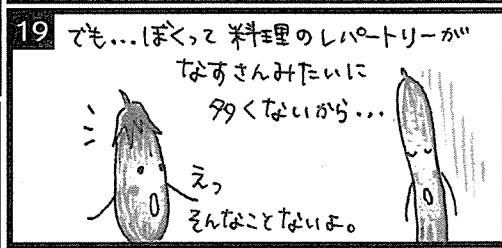 19
でも...ぼくって料理のレパートリーが
なすさんみたいに
多くないから...
えっ
そんなことないよ。